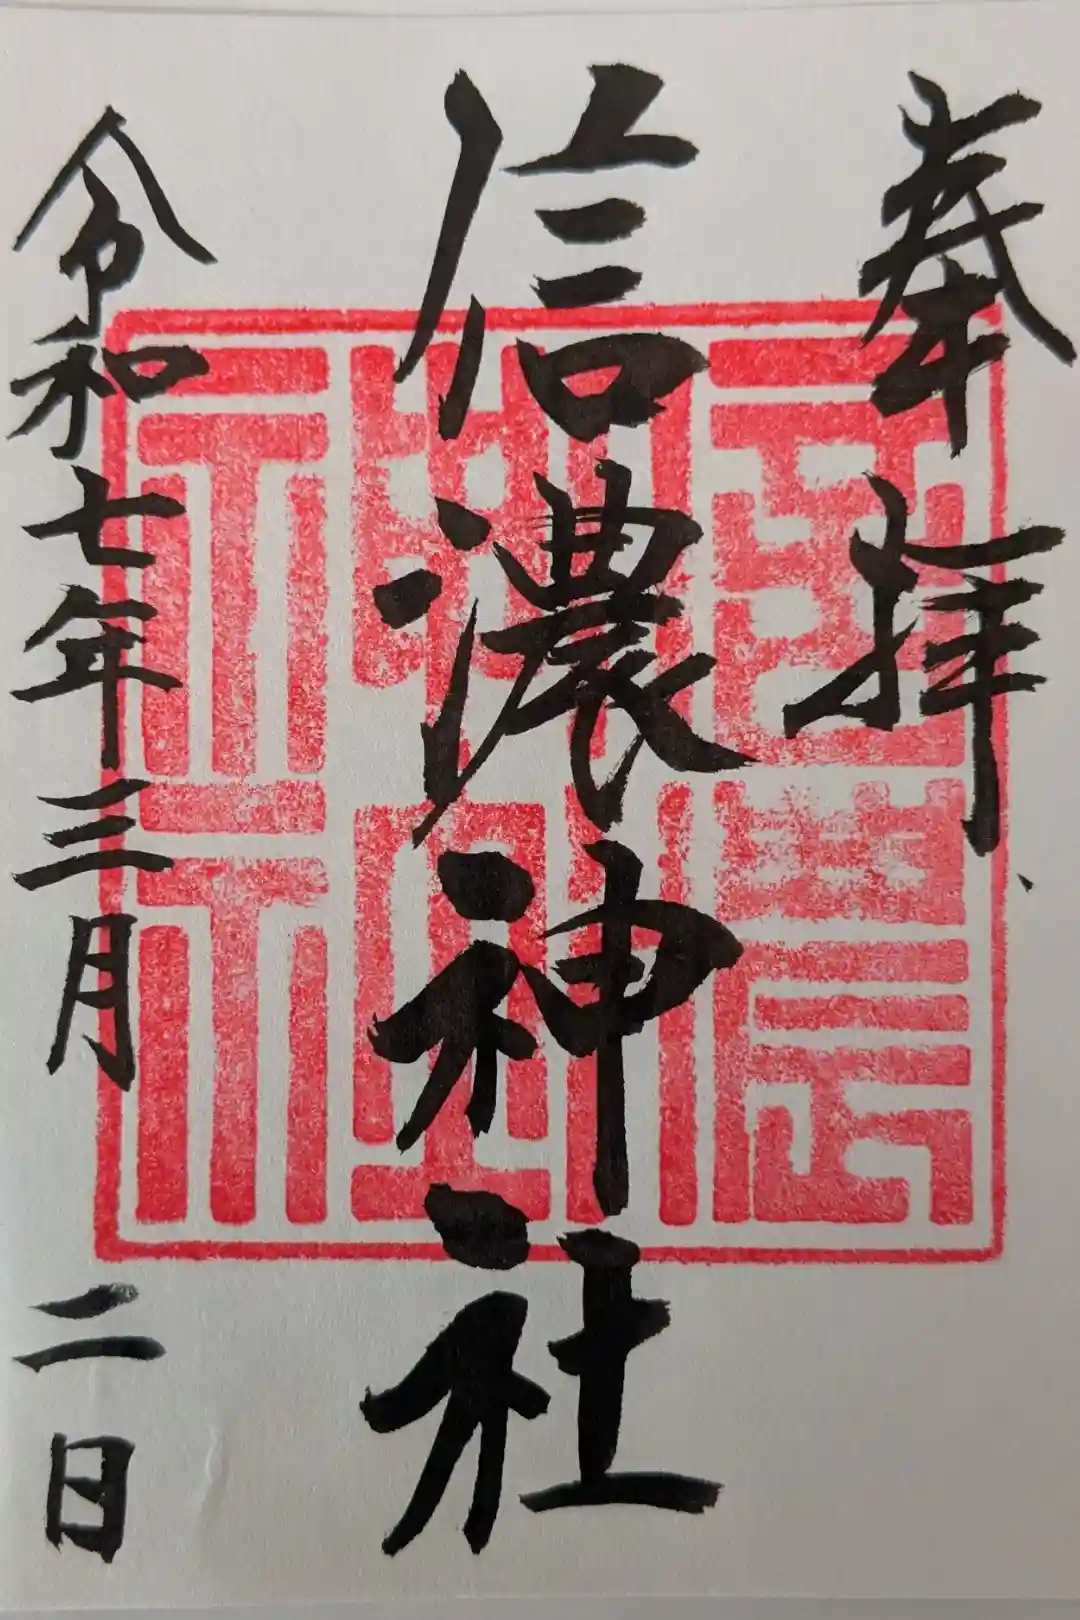 奉拝
信濃神社
令和七年三月二日